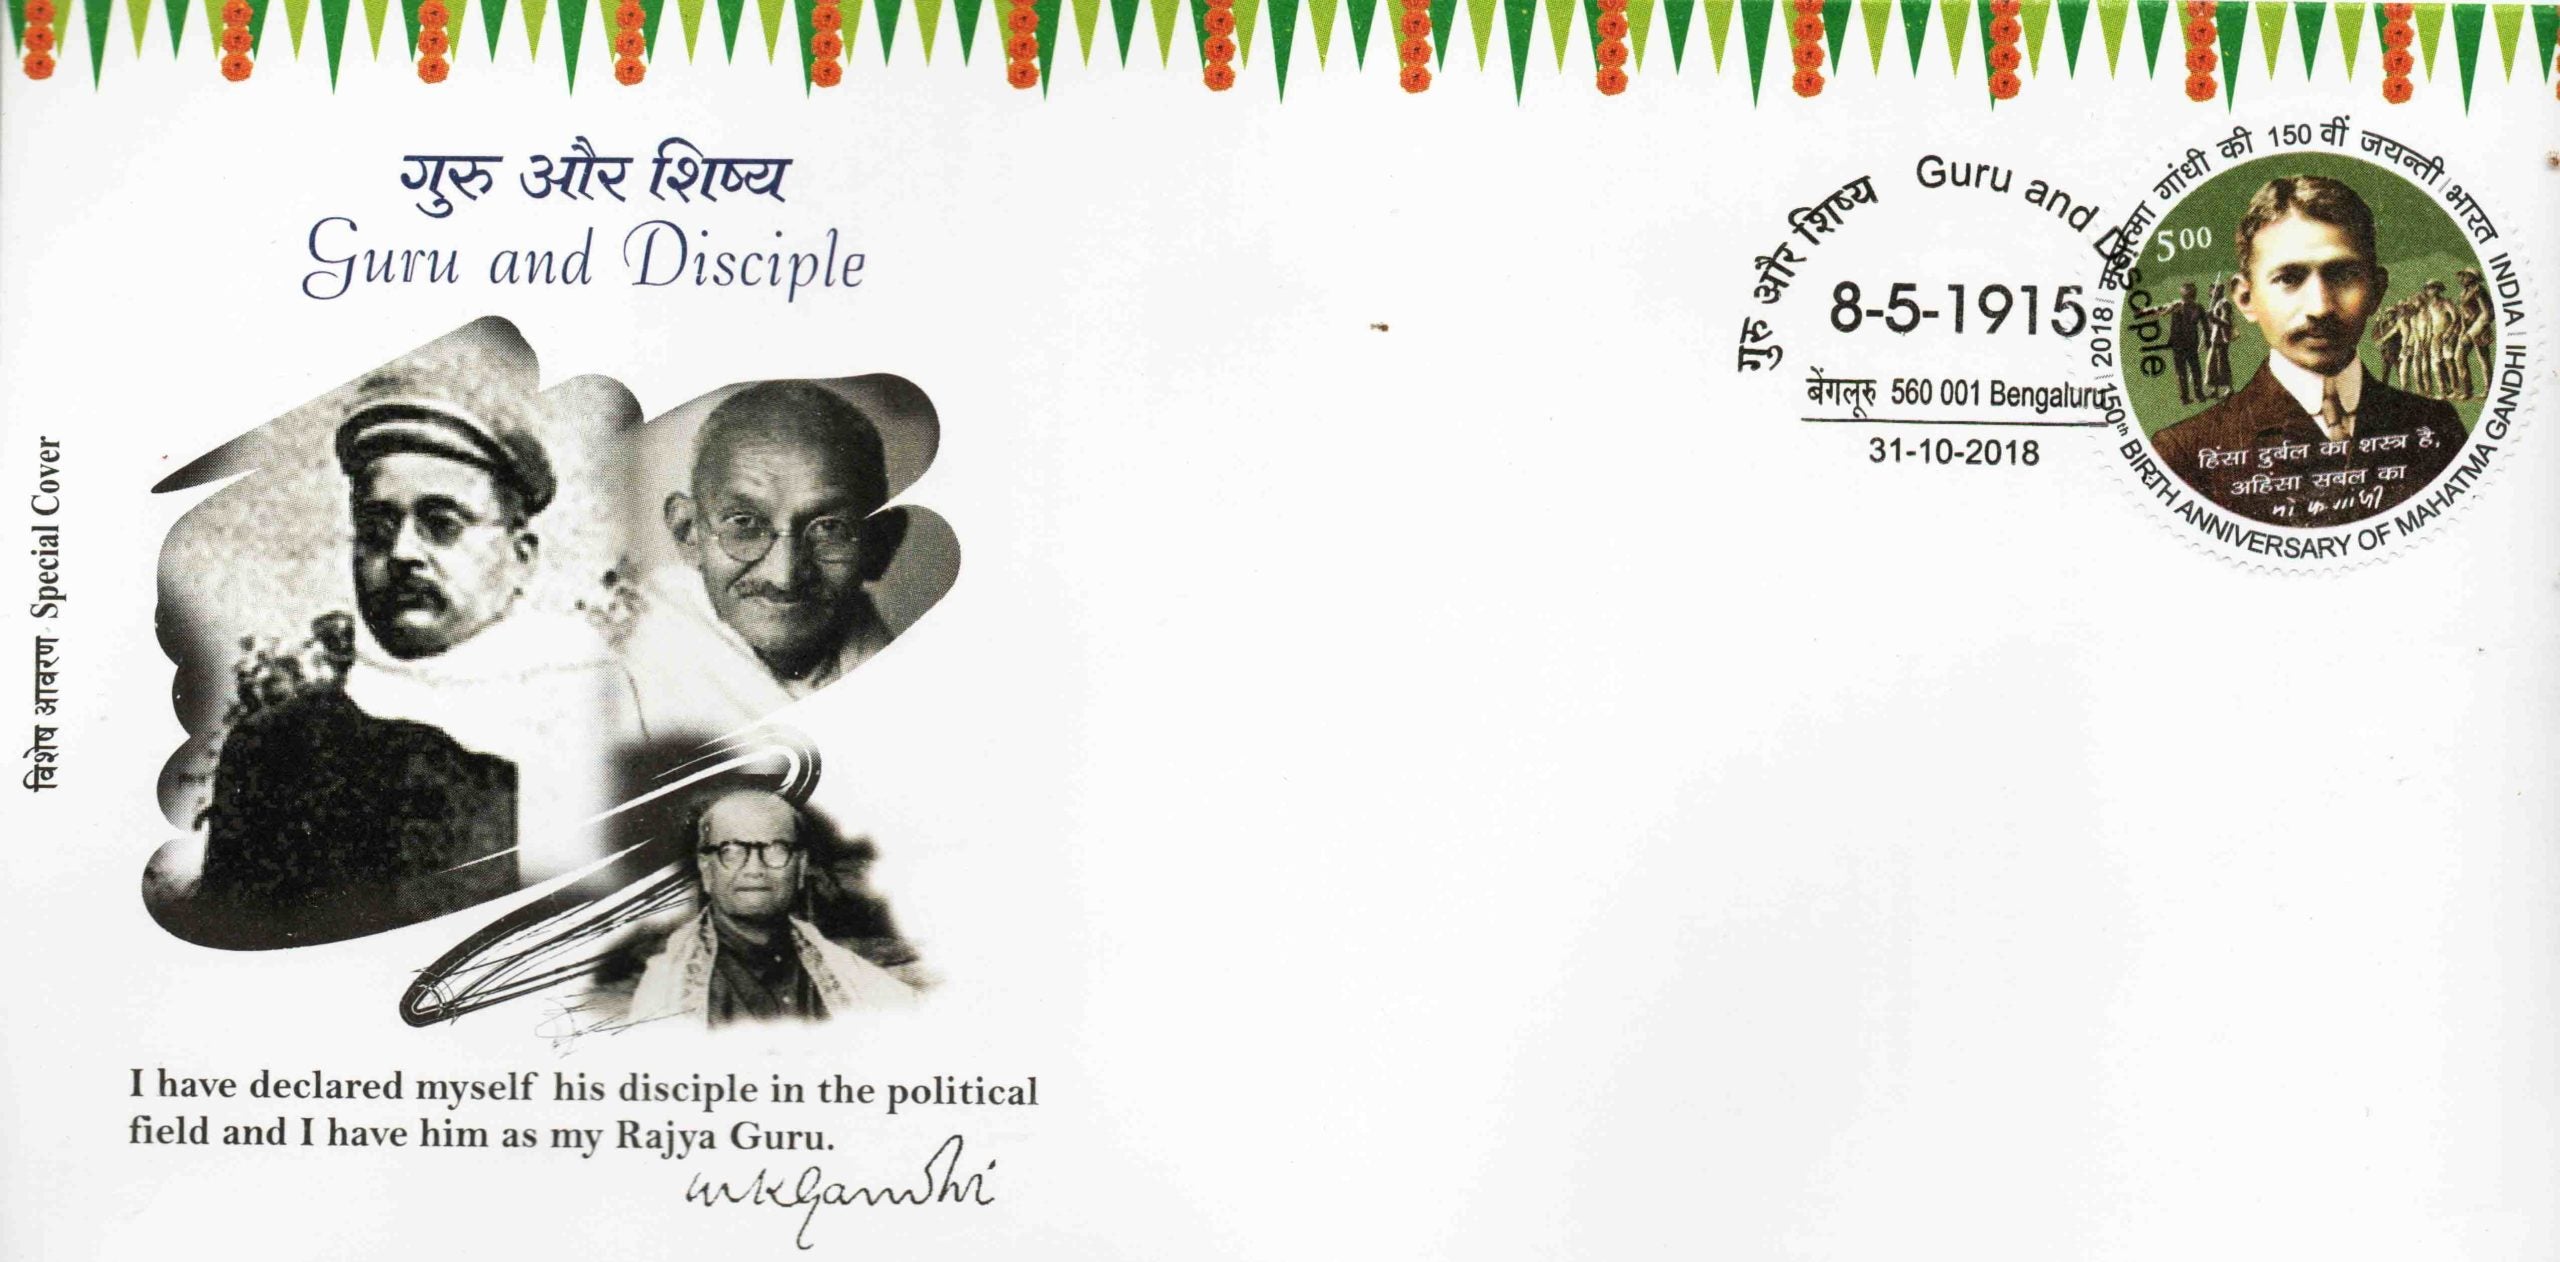 गुरु और शिष्य
Guru and Disciple
विशेष आवरण Special Cover
I have declared myself his disciple in the political
field and I have him as my Rajya Guru.
mkGandhi
गुरु और शिष्य Guru and Disciple
8-5-1915
बेंगलूरु 560 001 Bengaluru
31-10-2018
महात्मा गांधी की 150 वीं जयन्ती भारत INDIA
2018 150th BIRTH ANNIVERSARY OF MAHATMA GANDHI
500
हिंसा दुर्बल का शस्त्र है,
अहिंसा सबल का
मो क गांधी